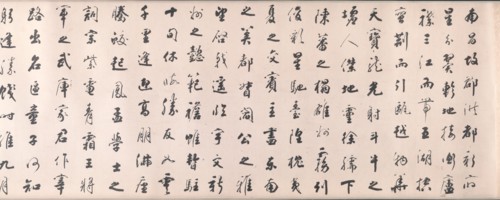 南昌故郡洪都新府
星分翼軫地接衡廬
襟三江而帶五湖控
蠻荊而引甌越物華
天寶龍光射斗牛之
墟人傑地靈徐孺下
陳蕃之榻雄州霧列
俊彩星馳臺隍枕夷
夏之交賓主盡東南
之美都督閻公之雅
望棨戟遙臨宇文新
州之懿範襜帷暫駐
十旬休暇勝友如雲
千里逢迎高朋滿座
騰蛟起鳳孟學士之
詞宗紫電青霜王將
軍之武庫家君作宰
路出名區童子何知
躬逢勝餞時維九月